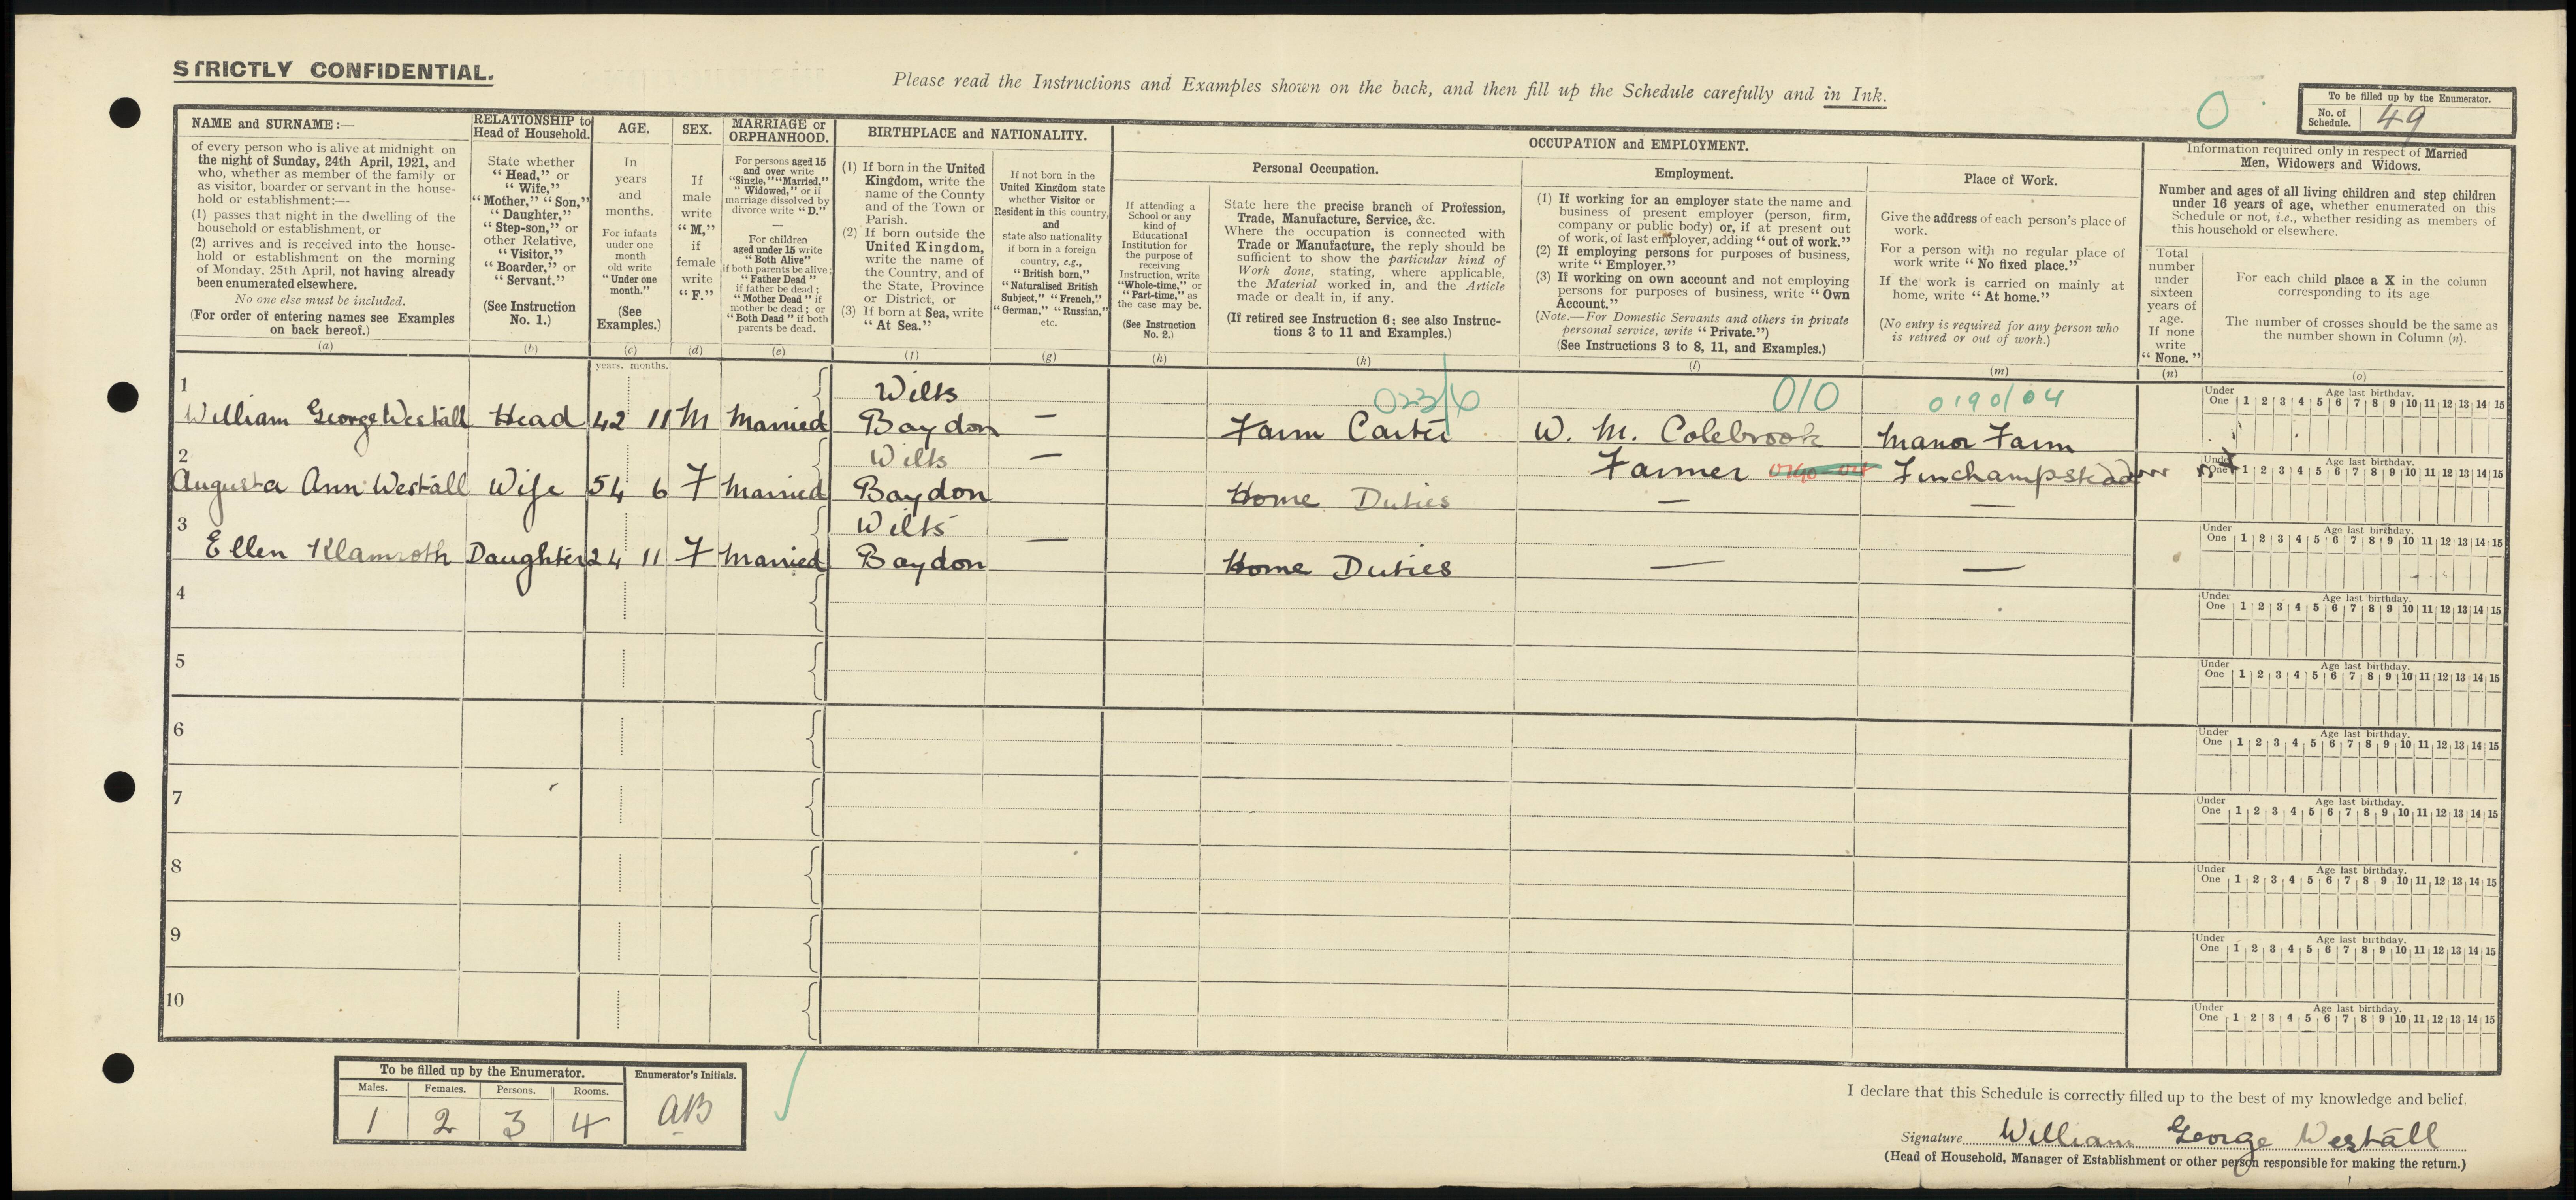 STRICTLY CONFIDENTIAL.
Please read the Instructions and Examples shown on the back, and then fill up the Schedule carefully and in Ink.
O
To be filled up by the Enumerator.
No. of Schedule. 49
NAME and SURNAME:—
of every person who is alive at midnight on
the night of Sunday, 24th April, 1921, and
who, whether as member of the family or
as visitor, boarder or servant in the house-
hold or establishment:—
(1) passes that night in the dwelling of the
household or establishment, or
(2) arrives and is received into the house-
hold or establishment on the morning
of Monday, 25th April, not having already
been enumerated elsewhere.
No one else must be included.
(For order of entering names see Examples
on back hereof.)
(a)
RELATIONSHIP to
Head of Household.
State whether
"Head," or
"Wife,"
"Mother," "Son,"
"Daughter,"
"Step-son," or
other Relative,
"Visitor,"
"Boarder," or
"Servant."
(See Instruction
No. 1.)
(b)
AGE.
In
years
and
months.
For infants
under one
month
old write
"Under one
month."
(See
Examples.)
(c)
years. months.
SEX.
If
male
write
"M,"
if
female
write
"F."
(d)
MARRIAGE or
ORPHANHOOD.
For persons aged 15
and over write
"Single," "Married,"
"Widowed," or if
marriage dissolved by
divorce write "D."
—
For children
aged under 15 write
"Both Alive"
if both parents be alive;
"Father Dead"
if father be dead;
"Mother Dead" if
mother be dead; or
"Both Dead" if both
parents be dead.
(e)
BIRTHPLACE and NATIONALITY.
(1) If born in the United
Kingdom, write the
name of the County
and of the Town or
Parish.
(2) If born outside the
United Kingdom,
write the name of
the Country, and of
the State, Province
or District, or
(3) If born at Sea, write
"At Sea."
(f)
If not born in the
United Kingdom state
whether Visitor or
Resident in this country,
and
state also nationality
if born in a foreign
country, e.g.,
"British born,"
"Naturalised British
Subject," "French,"
"German," "Russian,"
etc.
(g)
OCCUPATION and EMPLOYMENT.
Personal Occupation.
If attending a
School or any
kind of
Educational
Institution for
the purpose of
receiving
Instruction, write
"Whole-time," or
"Part-time," as
the case may be.
(See Instruction
No. 2.)
(h)
State here the precise branch of Profession,
Trade, Manufacture, Service, &c.
Where the occupation is connected with
Trade or Manufacture, the reply should be
sufficient to show the particular kind of
Work done, stating, where applicable,
the Material worked in, and the Article
made or dealt in, if any.
(If retired see Instruction 6; see also Instruc-
tions 3 to 11 and Examples.)
(k)
Employment.
(1) If working for an employer state the name and
business of present employer (person, firm,
company or public body) or, if at present out
of work, of last employer, adding "out of work."
(2) If employing persons for purposes of business,
write "Employer."
(3) If working on own account and not employing
persons for purposes of business, write "Own
Account."
(Note.—For Domestic Servants and others in private
personal service, write "Private.")
(See Instructions 3 to 8, 11, and Examples.)
(l)
Place of Work.
Give the address of each person's place of
work.
For a person with no regular place of
work write "No fixed place."
If the work is carried on mainly at
home, write "At home."
(No entry is required for any person who
is retired or out of work.)
(m)
Information required only in respect of Married
Men, Widowers and Widows.
Number and ages of all living children and step children
under 16 years of age, whether enumerated on this
Schedule or not, i.e., whether residing as members of
this household or elsewhere.
Total
number
under
sixteen
years of
age.
If none
write
"None."
(n)
For each child place a X in the column
corresponding to its age.
The number of crosses should be the same as
the number shown in Column (n).
(o)
1 Wilts 023/6 010 0190/04
William George Westall Head 42 11 M Married Baydon — Farm Carter W. M. Colebrook Manor Farm
Under One 1 2 3 4 5 6 7 8 9 10 11 12 13 14 15
Age last birthday.
2 Wilts — Farmer Finchampstead
Augusta Ann Westall Wife 54 6 F Married Baydon Home Duties — —
Under One 1 2 3 4 5 6 7 8 9 10 11 12 13 14 15
Age last birthday.
3 Wilts
Ellen Klamroth Daughter 24 11 F Married Baydon — Home Duties — —
Under One 1 2 3 4 5 6 7 8 9 10 11 12 13 14 15
Age last birthday.
4
Under One 1 2 3 4 5 6 7 8 9 10 11 12 13 14 15
Age last birthday.
5
Under One 1 2 3 4 5 6 7 8 9 10 11 12 13 14 15
Age last birthday.
6
Under One 1 2 3 4 5 6 7 8 9 10 11 12 13 14 15
Age last birthday.
7
Under One 1 2 3 4 5 6 7 8 9 10 11 12 13 14 15
Age last birthday.
8
Under One 1 2 3 4 5 6 7 8 9 10 11 12 13 14 15
Age last birthday.
9
Under One 1 2 3 4 5 6 7 8 9 10 11 12 13 14 15
Age last birthday.
10
Under One 1 2 3 4 5 6 7 8 9 10 11 12 13 14 15
Age last birthday.
To be filled up by the Enumerator.
Males. Females. Persons. Rooms.
1 2 3 4
Enumerator's Initials.
AB
I declare that this Schedule is correctly filled up to the best of my knowledge and belief.
Signature William George Westall
(Head of Household, Manager of Establishment or other person responsible for making the return.)